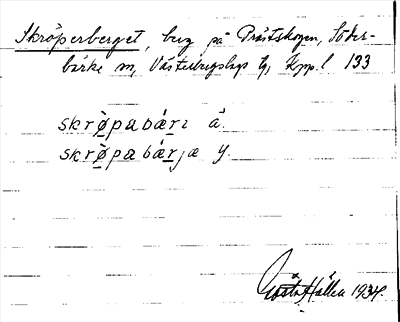 Skröperberget, berg på Prästskogen, Söder-
bärke sn, Västerbergslags tg, Kpp. l 133
skrø̀pabæ̀rı å.
skrø̀pabæ̀rja y.
Gösta Hållen 1934.